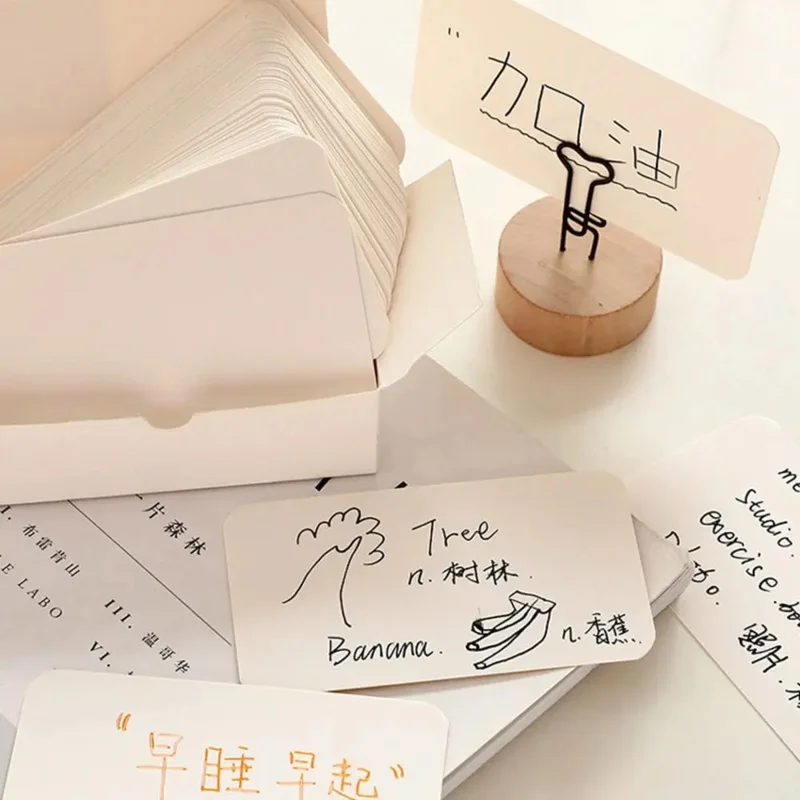 "加油
片森林
布雷肯山
LE LABO
III. 温哥华
VI.
Tree
n. 树林.
Banana.
n. 香蕉.
me
studio.
exercise.bo
照片
"早睡早起"